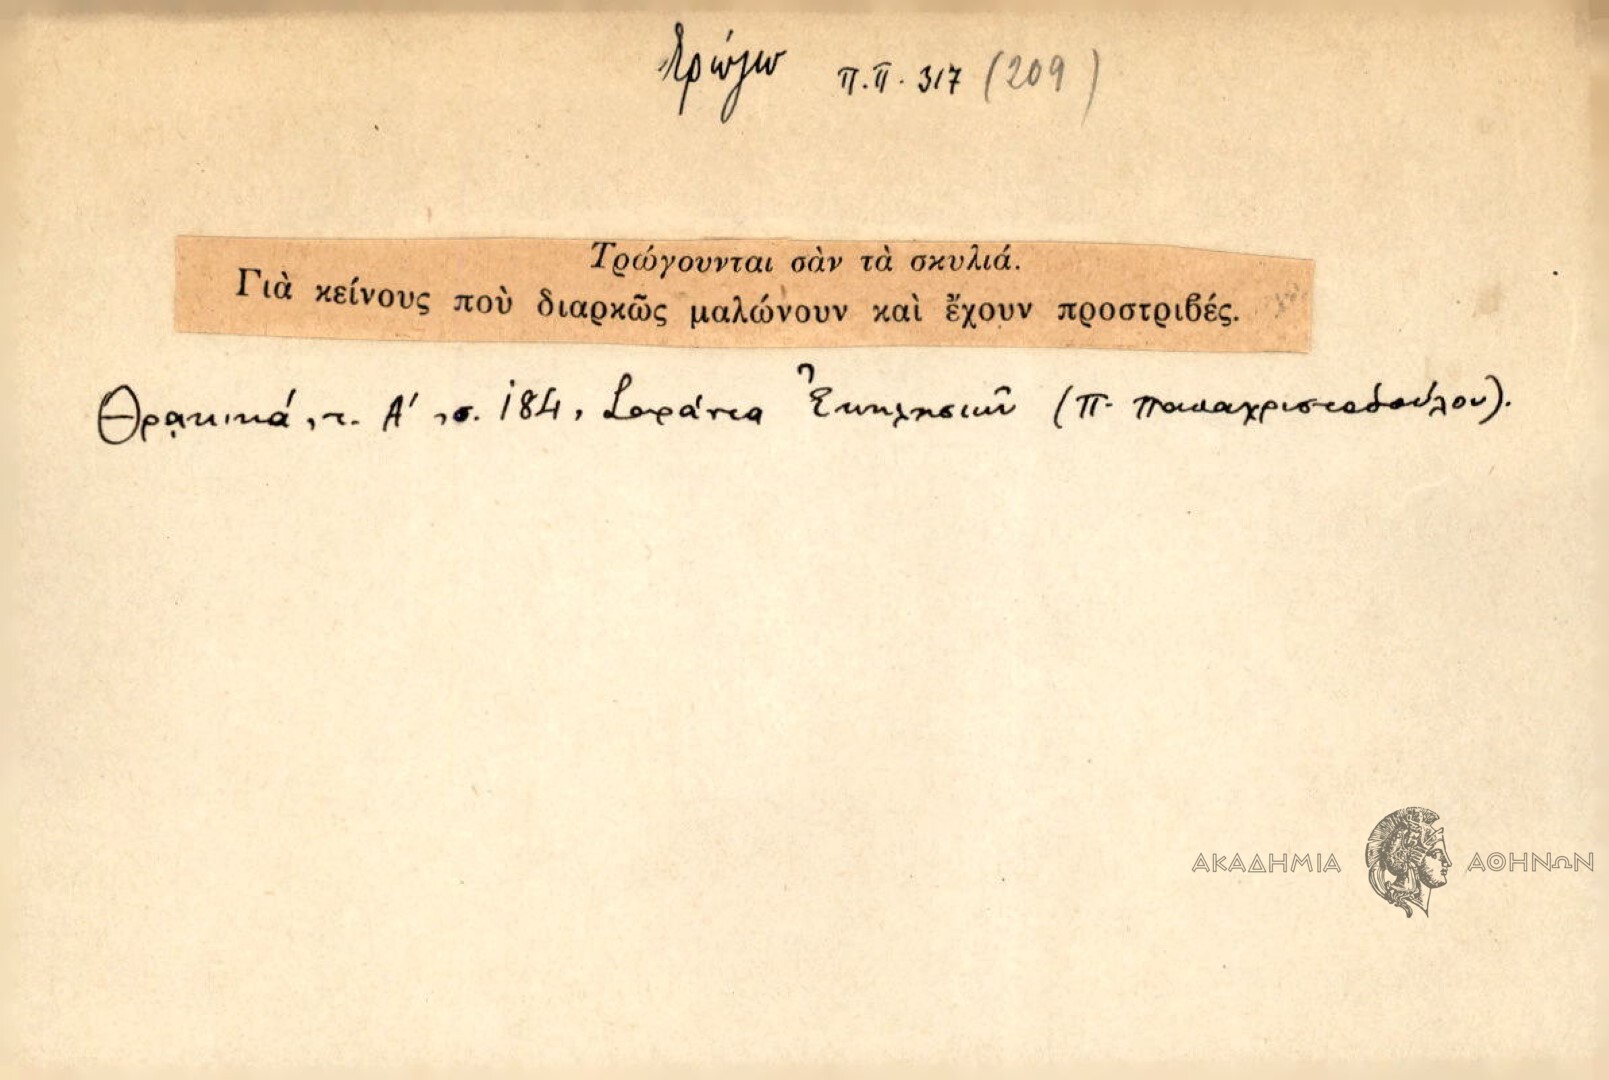 τρώγω π.π. 317 (209)
Τρώγουνται σὰν τὰ σκυλιά.
Γιὰ κείνους ποὺ διαρκῶς μαλώνουν καὶ ἔχουν προστριβές.
Θρακικά, τ. Α', σ. 184, Σαράντα Ἐκκλησιῶν (Π. Παπαχριστοδούλου).
ΑΚΑΔΗΜΙΑ ΑΘΗΝΩΝ